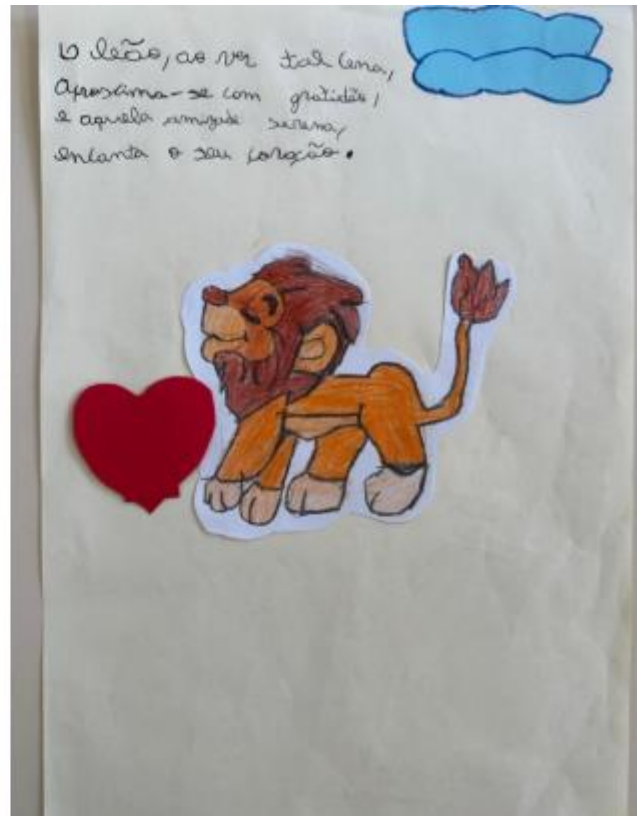 O leão, ao ver tal cena,
aproxima-se com gratidão,
e aquela amizade serena,
encanta o seu coração.